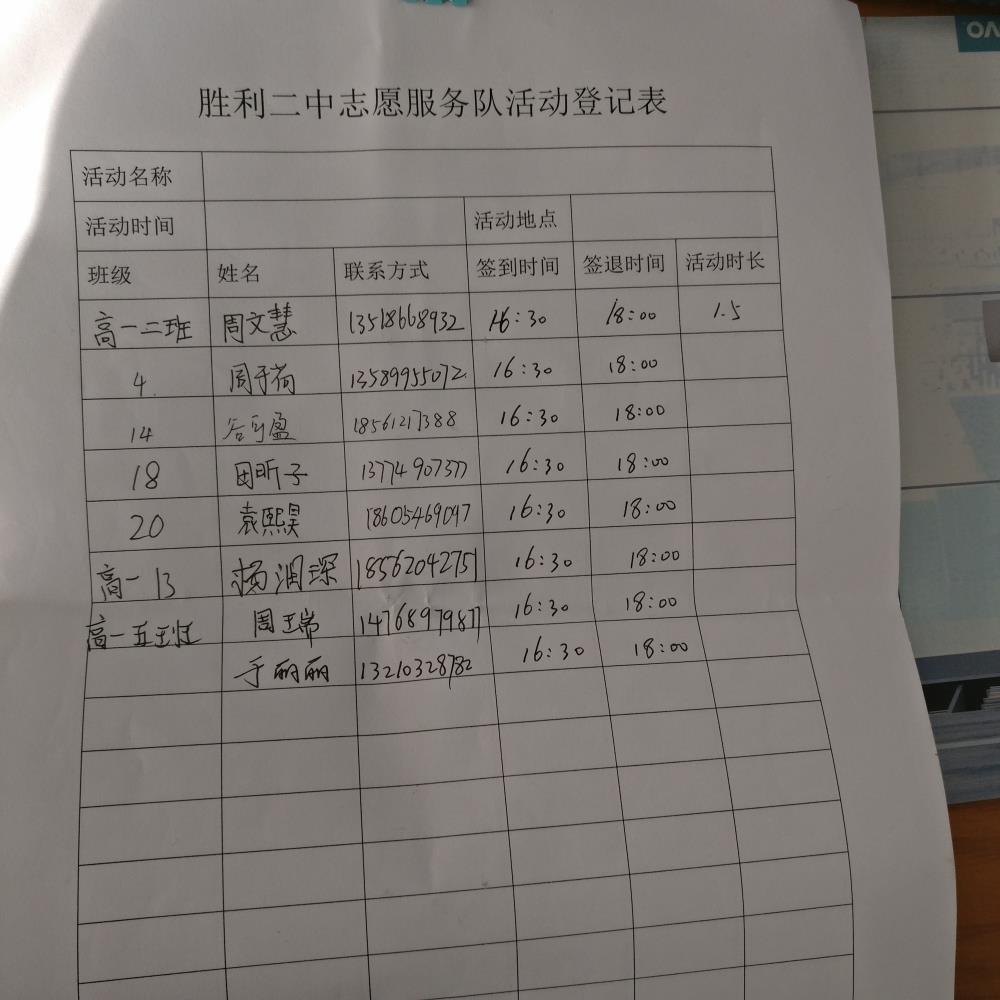 胜利二中志愿服务队活动登记表
活动名称
活动时间 活动地点
班级 姓名 联系方式 签到时间 签退时间 活动时长
高一二班 周文慧 13518668932 16:30 18:00 1.5
4. 周于荷 13589955072 16:30 18:00
14 谷可盈 18561217388 16:30 18:00
18 田昕子 13774907377 16:30 18:00
20 袁熙昊 18605469097 16:30 18:00
高一13 杨润深 18562042751 16:30 18:00
高一五班 周瑞 14768979877 16:30 18:00
于丽丽 13210328782 16:30 18:00